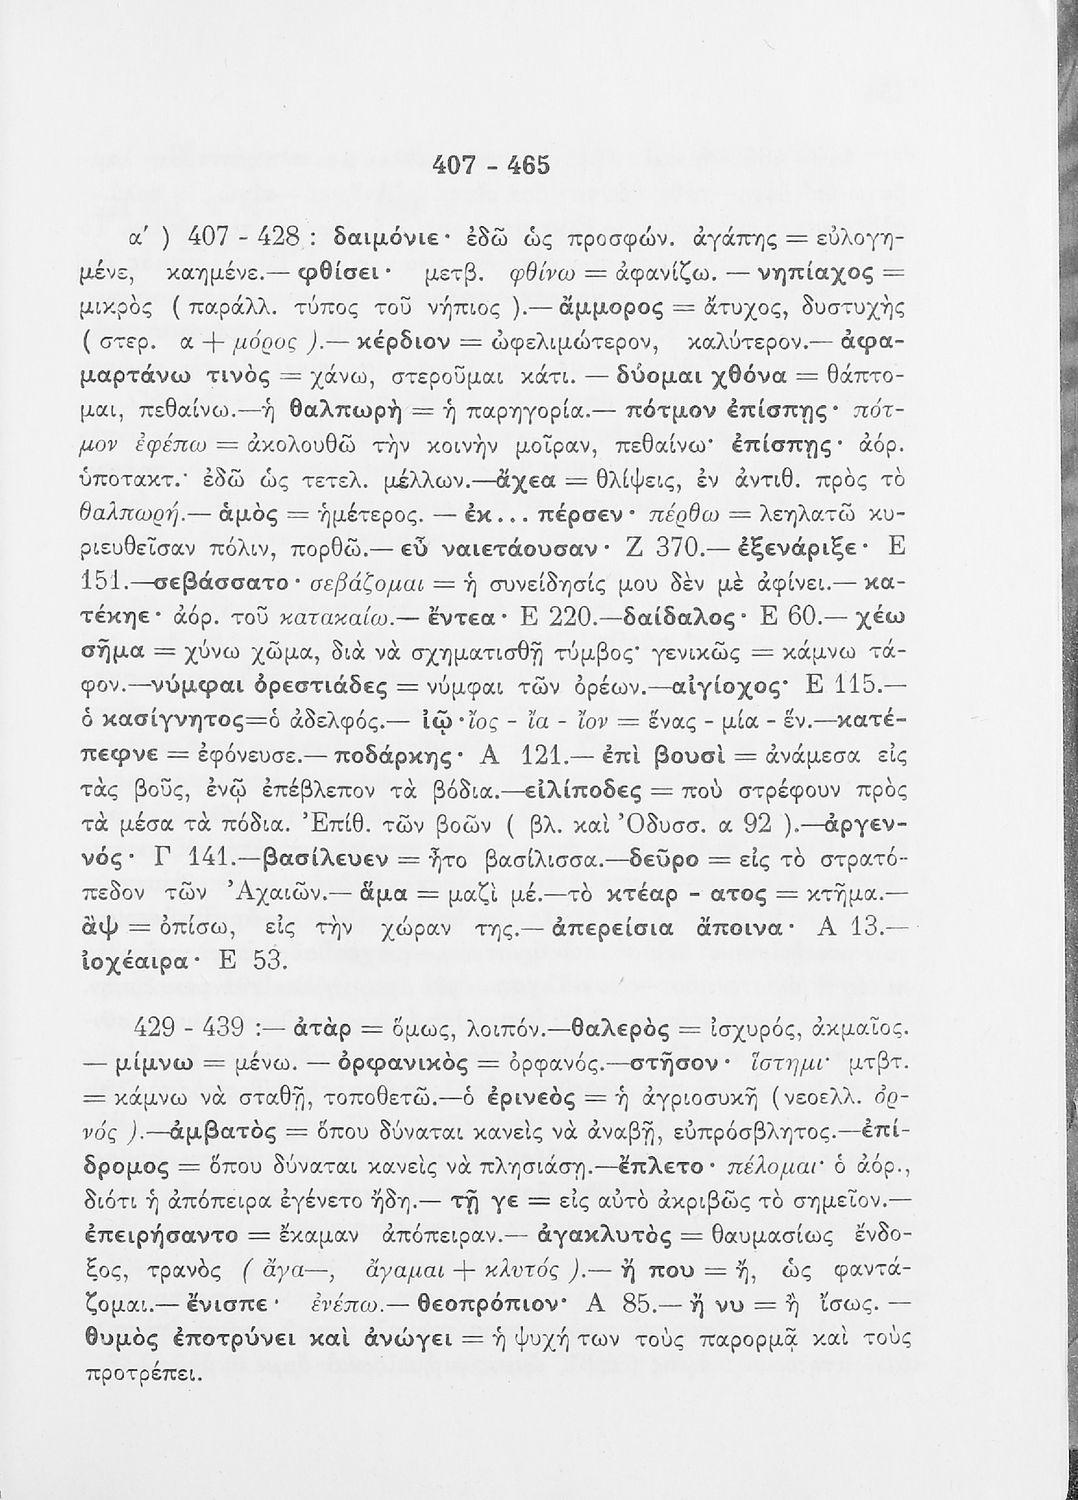 407 - 465
α′ ) 407 - 428 : δαιμόνιε· ἐδῶ ὡς προσφών. ἀγάπης = εὐλογη-
μένε, καημένε.— φθίσει· μετβ. φθίνω = ἀφανίζω. — νηπίαχος =
μικρὸς ( παράλλ. τύπος τοῦ νήπιος ).— ἄμμορος = ἄτυχος, δυστυχὴς
( στερ. α + μόρος ).— κέρδιον = ὠφελιμώτερον, καλύτερον.— ἀφα-
μαρτάνω τινὸς = χάνω, στεροῦμαι κάτι. — δύομαι χθόνα = θάπτο-
μαι, πεθαίνω.—ἡ θαλπωρὴ = ἡ παρηγορία.— πότμον ἐπίσπῃς· πότ-
μον ἐφέπω = ἀκολουθῶ τὴν κοινὴν μοῖραν, πεθαίνω· ἐπίσπῃς· ἀόρ.
ὑποτακτ.· ἐδῶ ὡς τετελ. μέλλων.—ἄχεα = θλίψεις, ἐν ἀντιθ. πρὸς τὸ
θαλπωρή.— ἁμὸς = ἡμέτερος. — ἐκ... πέρσεν· πέρθω = λεηλατῶ κυ-
ριευθεῖσαν πόλιν, πορθῶ.— εὖ ναιετάουσαν· Ζ 370.— ἐξενάριξε· Ε
151.—σεβάσσατο· σεβάζομαι = ἡ συνείδησίς μου δὲν μὲ ἀφίνει.— κα-
τέκηε· ἀόρ. τοῦ κατακαίω.— ἔντεα· Ε 220.—δαίδαλος· Ε 60.— χέω
σῆμα = χύνω χῶμα, διὰ νὰ σχηματισθῇ τύμβος· γενικῶς = κάμνω τά-
φον.—νύμφαι ὀρεστιάδες = νύμφαι τῶν ὀρέων.—αἰγίοχος· Ε 115.—
ὁ κασίγνητος=ὁ ἀδελφός.— ἰῷ· ἴος - ἴα - ἴον = ἕνας - μία - ἕν.—κατέ-
πεφνε = ἐφόνευσε.— ποδάρκης· Α 121.— ἐπὶ βουσὶ = ἀνάμεσα εἰς
τὰς βοῦς, ἐνῷ ἐπέβλεπον τὰ βόδια.—εἰλίποδες = ποὺ στρέφουν πρὸς
τὰ μέσα τὰ πόδια. Ἐπίθ. τῶν βοῶν ( βλ. καὶ Ὀδυσσ. α 92 ).—ἀργεν-
νός· Γ 141.—βασίλευεν = ἦτο βασίλισσα.—δεῦρο = εἰς τὸ στρατό-
πεδον τῶν Ἀχαιῶν.— ἅμα = μαζὶ μέ.—τὸ κτέαρ - ατος = κτῆμα.—
ἂψ = ὀπίσω, εἰς τὴν χώραν της.— ἀπερείσια ἄποινα· Α 13.—
ἰοχέαιρα· Ε 53.
429 - 439 :— ἀτὰρ = ὅμως, λοιπόν.—θαλερὸς = ἰσχυρός, ἀκμαῖος.
— μίμνω = μένω. — ὀρφανικὸς = ὀρφανός.—στῆσον· ἵστημι· μτβτ.
= κάμνω νὰ σταθῇ, τοποθετῶ.—ὁ ἐρινεὸς = ἡ ἀγριοσυκῆ (νεοελλ. ὀρ-
νός ).—ἀμβατὸς = ὅπου δύναται κανεὶς νὰ ἀναβῇ, εὐπρόσβλητος.—ἐπί-
δρομος = ὅπου δύναται κανεὶς νὰ πλησιάσῃ.—ἔπλετο· πέλομαι· ὁ ἀόρ.,
διότι ἡ ἀπόπειρα ἐγένετο ἤδη.— τῇ γε = εἰς αὐτὸ ἀκριβῶς τὸ σημεῖον.—
ἐπειρήσαντο = ἔκαμαν ἀπόπειραν.— ἀγακλυτὸς = θαυμασίως ἔνδο-
ξος, τρανὸς ( ἄγα—, ἄγαμαι + κλυτός ).— ἤ που = ἤ, ὡς φαντά-
ζομαι.— ἔνισπε· ἐνέπω.— θεοπρόπιον· Α 85.— ἤ νυ = ἢ ἴσως. —
θυμὸς ἐποτρύνει καὶ ἀνώγει = ἡ ψυχή των τοὺς παρορμᾷ καὶ τοὺς
προτρέπει.